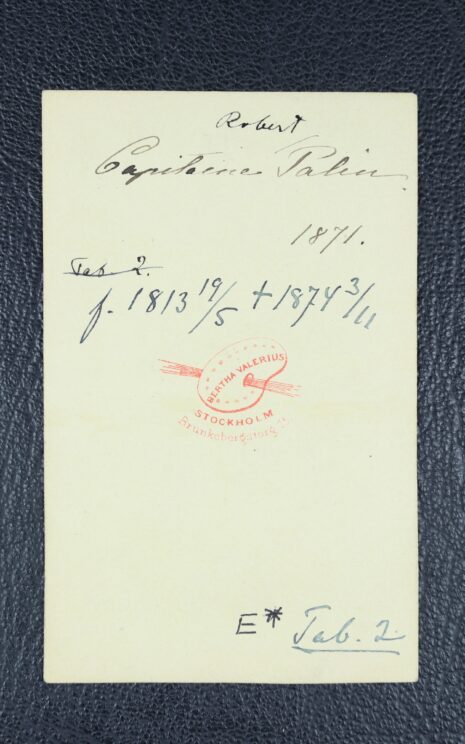 Robert
Capitaine Palin.
1871.
Tab. 2.
f. 1813 19/5 + 1874 3/11
BERTHA VALERIUS
STOCKHOLM
Brunkebergstorg
E* Tab. 2.